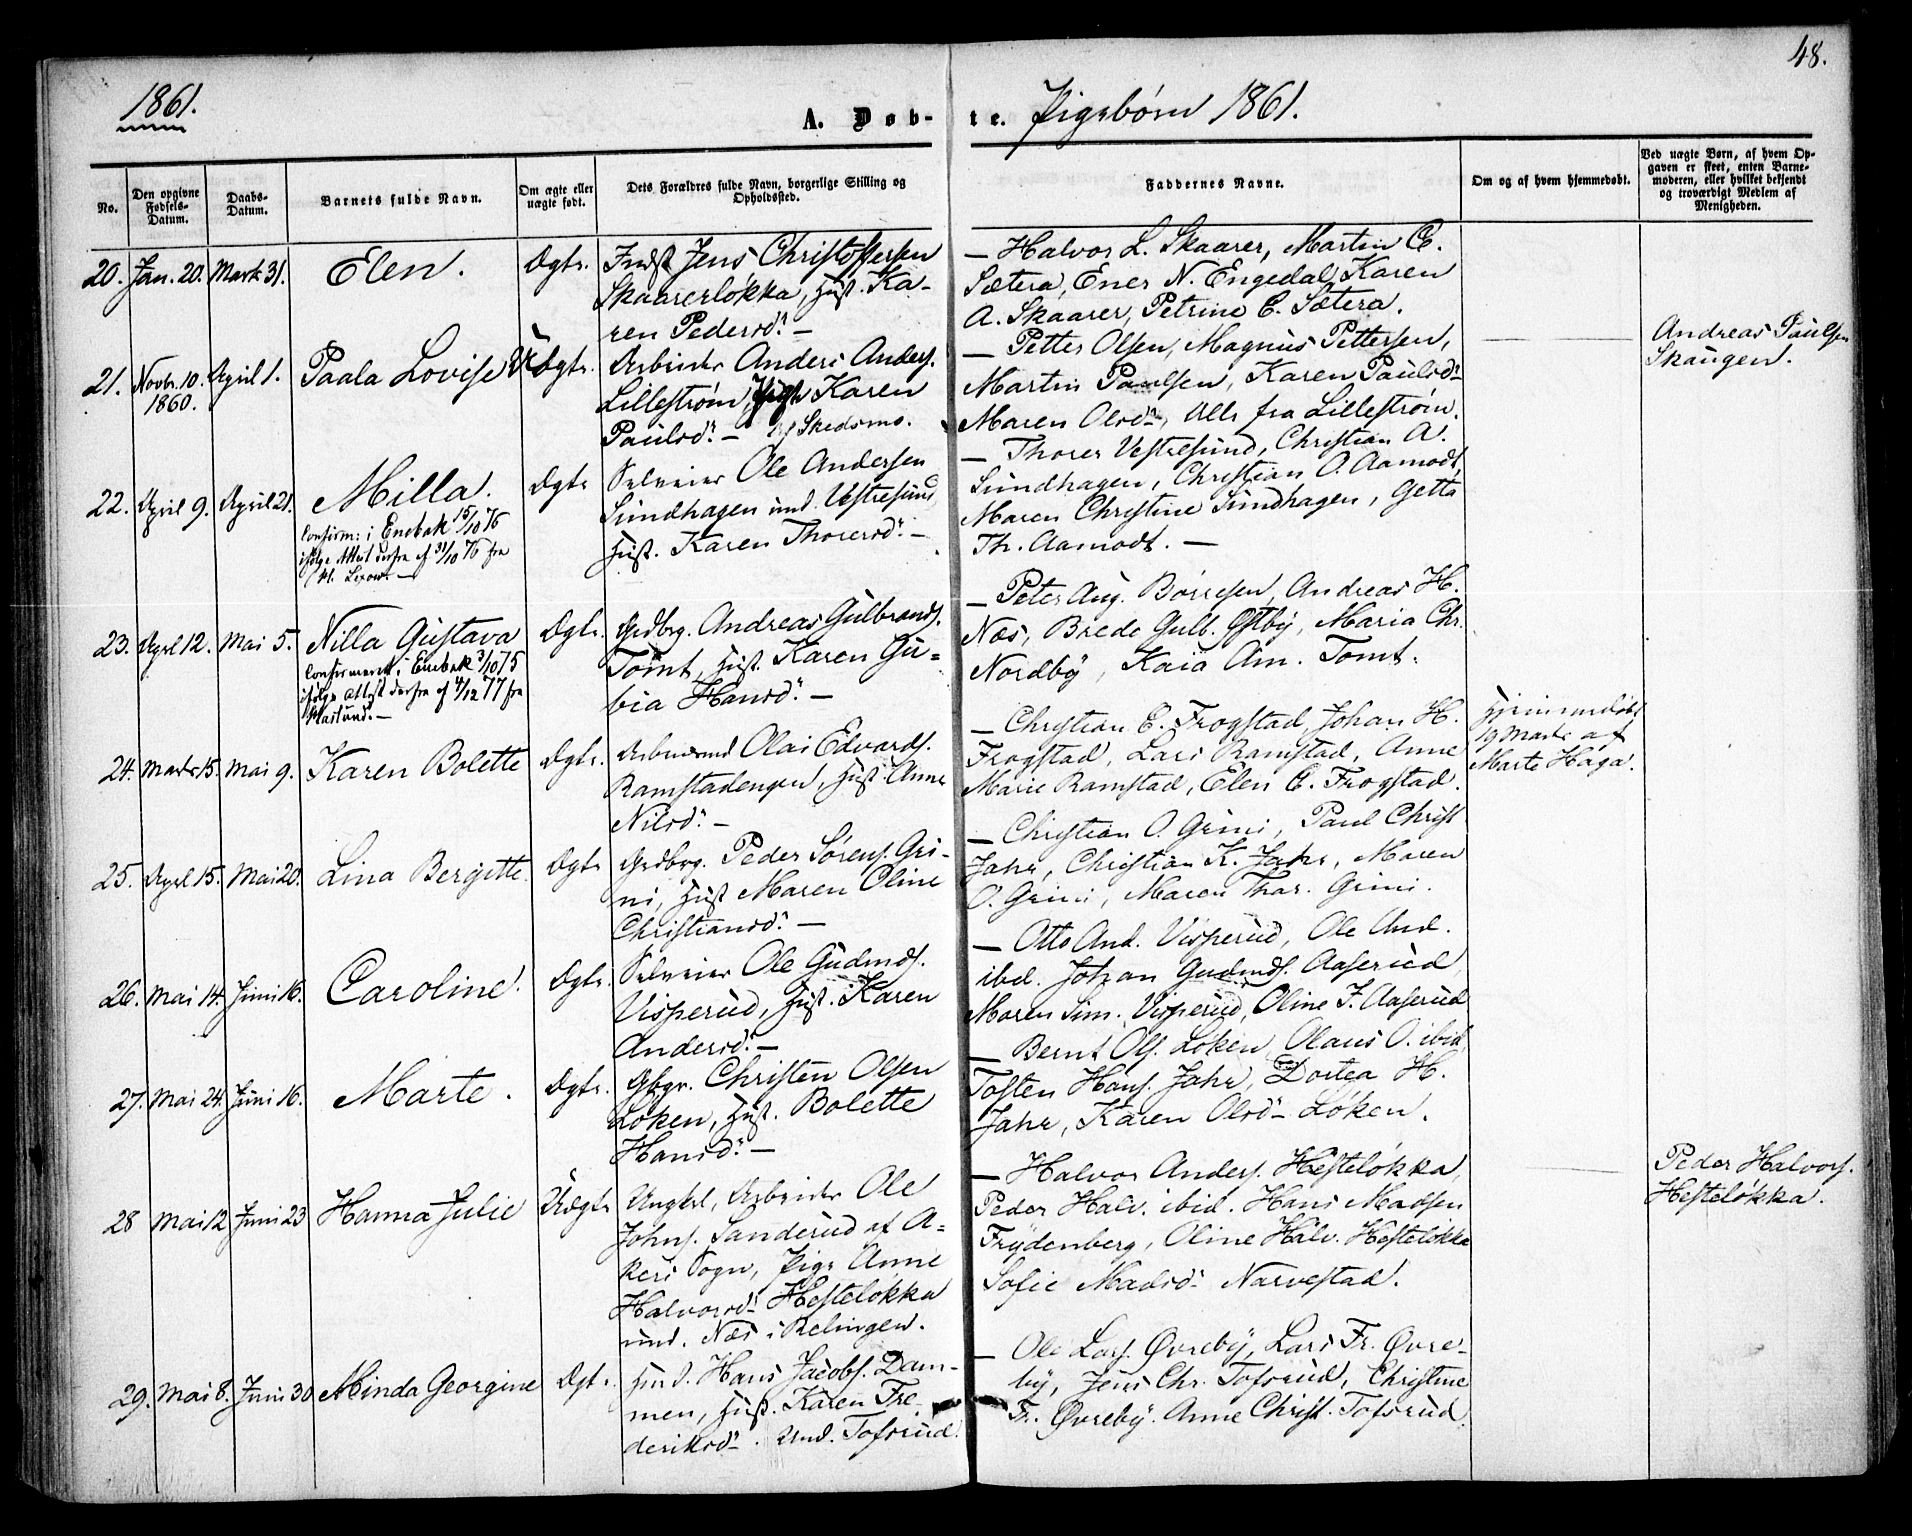 48.
1861.
A. Døb-
te. Pigebørn 1861.
No.
Den opgivne Fødsels-Datum.
Daabs-Datum.
Barnets fulde Navn.
Om ægte eller uægte født.
Dets Forældres fulde Navn, borgerlige Stilling og Opholdssted.
Faddernes Navne.
Om og af hvem hjemmedøbt.
Ved uægte Børn, af hvem Opgaven er skeet, enten Barnemoderen, eller hvilket bekjendt og troværdigt Medlem af Menigheden.
20. Jan. 20. Marts 31. Elen. Ægte.
Jens Christoffersen
Skaarerløkka, Hust. Ka-
ren Pedersd. —
— Halvor L. Skaarer, Martin E.
Sætera, Ener N. Engedal, Karen
A. Skaarer, Petrine E. Sætera.
21. Novbr. 10. 1860. April 1. Paala Lovise Uægte.
Arbeider Anders Anders.
Lillestrøm, Pige Karen
Paulsd. — af Skedsmo.
— Petter Olsen, Magnus Pettersen,
Martin Paulsen, Karen Paulsd.
Maren Olsd., Alle fra Lillestrøm.
Andreas Paulsen
Skaugen.
22. April 9. April 21. Milla. Ægte
Confirm: i Enebak 15/10 76
ifølge Attest derfra af 31/10 76 fra
Selveier Ole Andersen
Sundhagen und. Vestresund,
Hust. Karen Thoresd. —
— Thorer Vestresund, Christian A.
Sundhagen, Christian O. Aamodt,
Maren Christine Sundhagen, Getta
Th. Aamodt. —
23. April 12. Mai 5. Nilla Gustava Ægte.
Confirmeret i Enebak 3/10 75
ifølge Attest derfra af 4/12 77 fra
Grdbrg. Andreas Gulbrands.
Tomt, Hust. Karen Gu-
bia Hansd. —
— Peter Aug. Børresen, Andreas H.
Næs, Brede Gulb. Østby, Maria Chr.
Nordby, Kaia Am. Tomt.
24. Marts 15. Mai 9. Karen Bolette Ægte.
Arbmand Olai Edvards.
Ramstadengen, Hust. Anne
Nilsd. —
— Christian E. Frogstad, Johan H.
Frogstad, Lars Ramstad, Anne
Marie Ramstad, Elen E. Frogstad.
Hjemmedøbt
19 Marts af
Marte Haga.
25. April 15. Mai 20. Lina Bergitte. Ægte
Grdbrg. Peder Sørens. Gri-
ni, Hust Maren Oline
Christiansd. —
— Christian O. Grini, Paul Christ
Jahr, Christian K. Jahr, Maren
O. Grini, Maren Thar. Grini.
26. Mai 14. Juni 16. Caroline. Ægte.
Selveier Ole Gudmds.
Visperud, Hust. Karen
Andersd. —
— Otto And. Visperud, Ole And.
ibd. Johan Gudmds. Aaserud,
Maren Sim. Visperud, Oline J. Aaserud
27. Mai 24. Juni 16. Marte. Ægte.
Gbgr. Christen Olsen
Løken, Hust. Bolette
Hansd. —
— Bernt Ols. Løken, Olaus O. ibid,
Tosten Hans. Jahr, Dortea H.
Jahr, Karen Olsd. Løken.
28 Mai 12 Juni 23 Hanna Julie Uægte
Ungkel, Arbeider Ole
Johns. Sanderud af A-
kers Sogn, Pige Anne
Halvorsd. Hesteløkka
und. Næs i Relingen.
— Halvor Anders. Hesteløkka,
Peder Halv. ibid. Hans Madsen
Frydenberg, Oline Halv. Hesteløkka
Sofie Madsd. Narvestad.
Peder Halvors.
Hesteløkka.
29. Mai 8. Juni 30 Minda Georgine Ægte.
Hans Jacobs. Dam-
men, Hust. Karen Fre-
deriksd. und. Tofsrud.
— Ole Lars. Øvreby, Lars Fr. Øvre-
by, Jens Chr. Tofsrud, Christine
Fr. Øvreby. Anne Christ. Tofsrud.